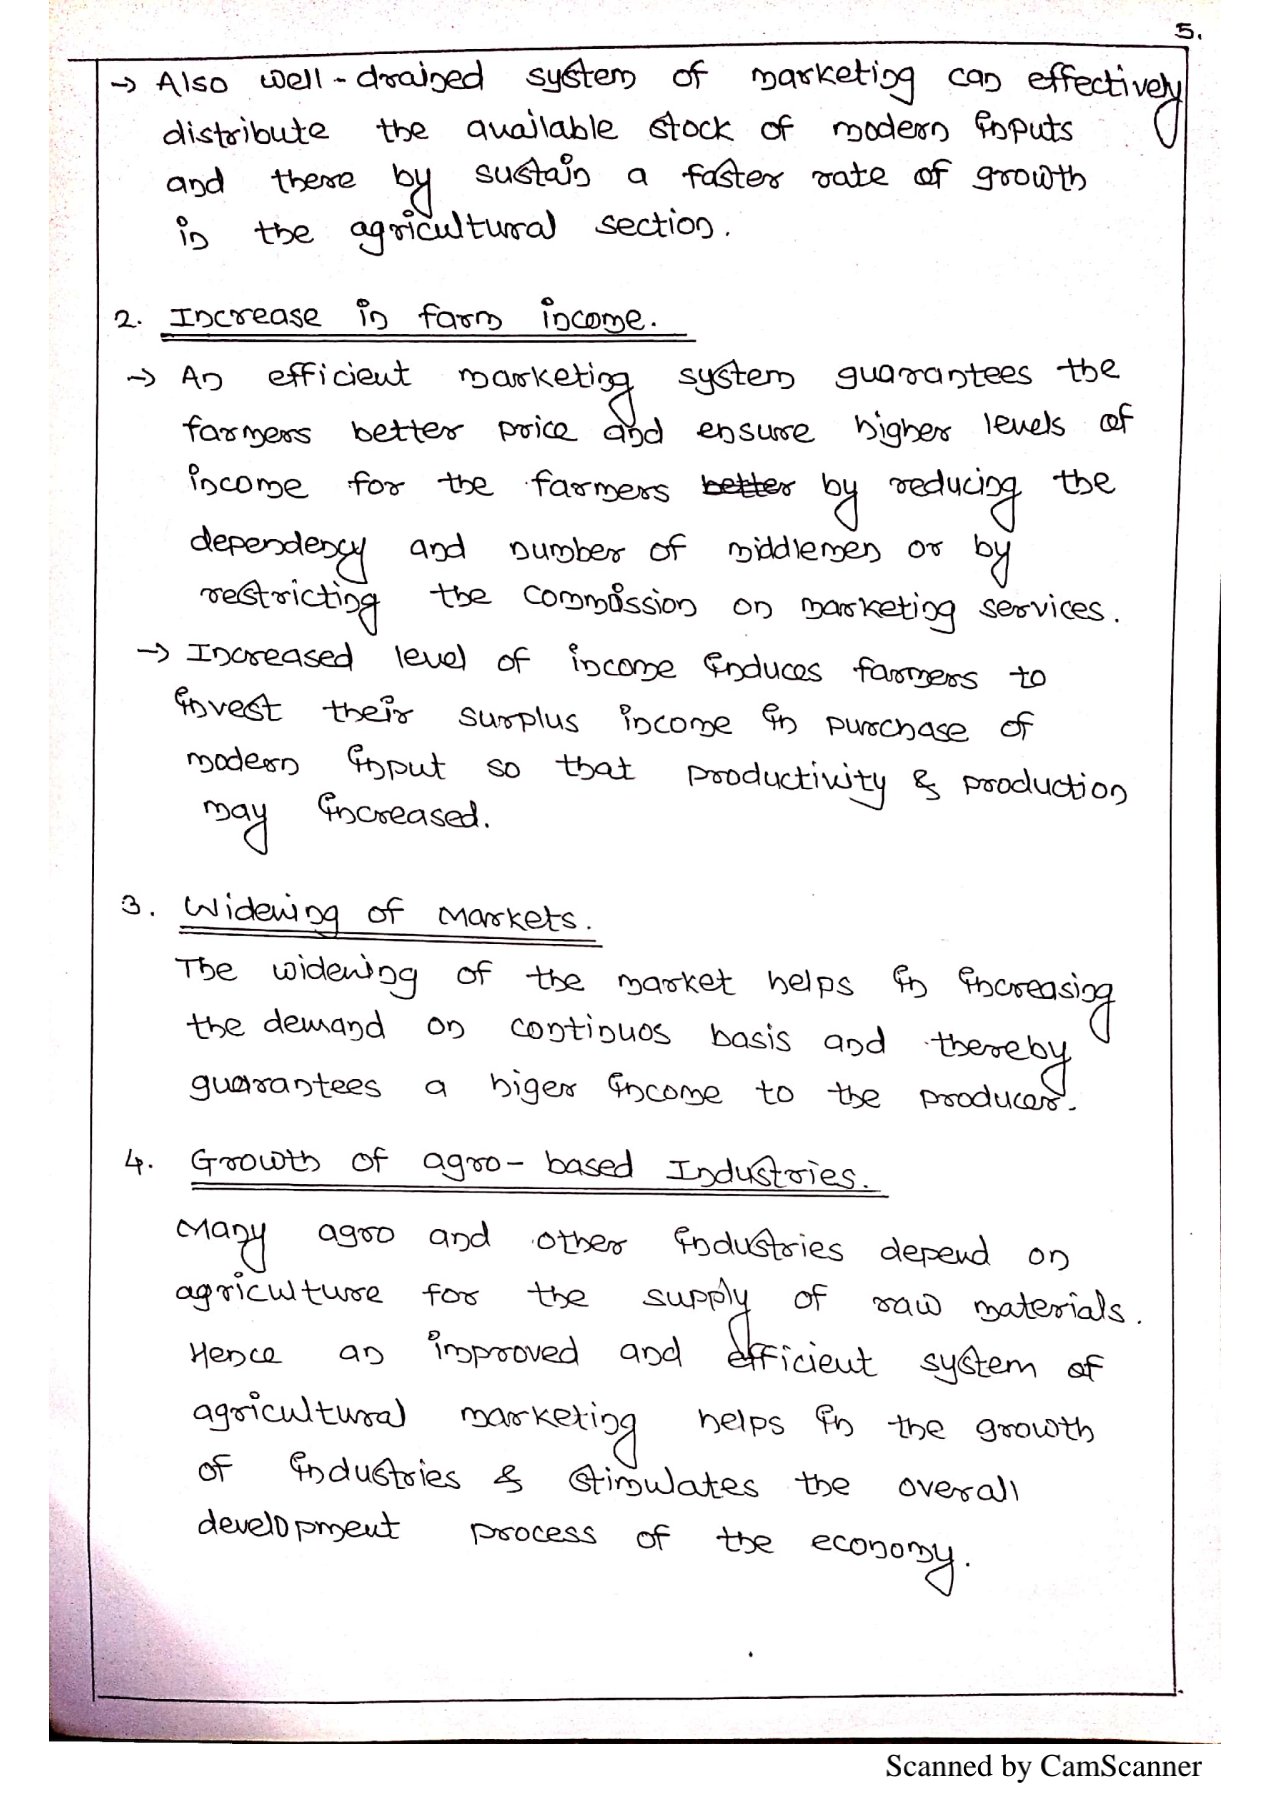 5.
→ Also well-drained system of marketing can effectively
distribute the available stock of modern inputs
and there by sustain a faster rate of growth
in the agricultural section.
2. Increase in farm income.
→ An efficient marketing system guarantees the
farmers better price and ensure higher levels of
income for the farmers better by reducing the
dependency and number of middlemen or by
restricting the commission on marketing services.
→ Increased level of income induces farmers to
invest their surplus income in purchase of
modern input so that productivity & production
may increased.
3. Widening of Markets.
The widening of the market helps in increasing
the demand on continuos basis and thereby
guarantees a higer income to the producer.
4. Growth of agro-based Industries.
Many agro and other industries depend on
agriculture for the supply of raw materials.
Hence an improved and efficient system of
agricultural marketing helps in the growth
of industries & stimulates the overall
development process of the economy.
Scanned by CamScanner